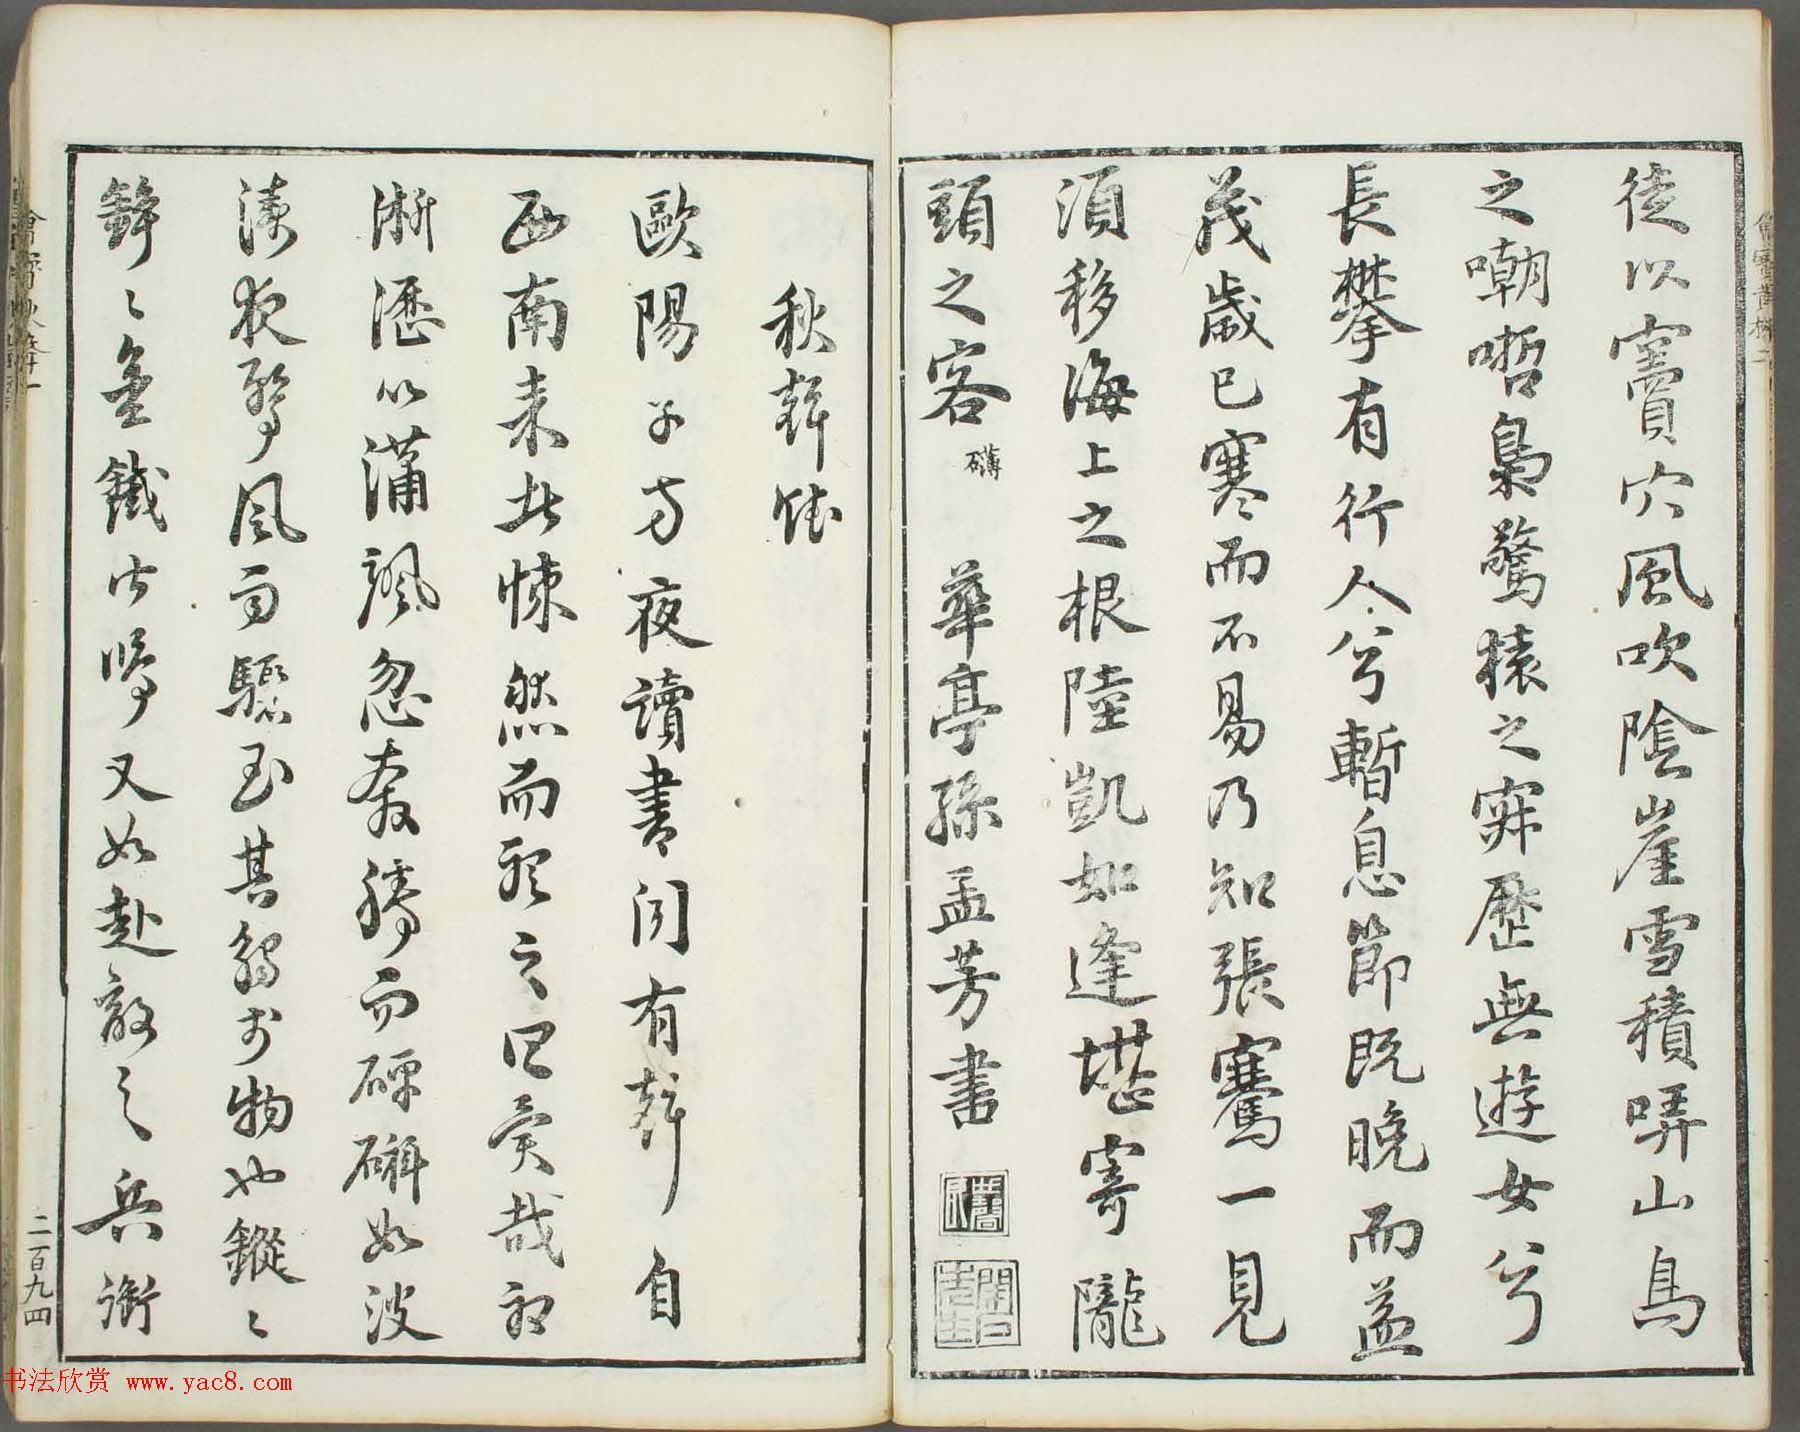 徒以竇穴風吹陰崖雪積哢山鳥
之嘲哳梟驚猿之寂歷無遊女兮
長攀有行人兮暫息節既晚而益
茂歲已寒而不易乃知張騫一見
須移海上之根陸凱如逢堪寄隴
頭之客 礴 華亭孫孟芳書
秋聲賦
歐陽子方夜讀書聞有聲自
西南來者悚然而聽之曰異哉初
淅瀝以蕭颯忽奔騰而砰磞如波
濤夜驚風雨驟至其觸於物也鏦〻
錚〻金鐵皆鳴又如赴敵之兵銜
二百九四
书法欣赏 www.yac8.com